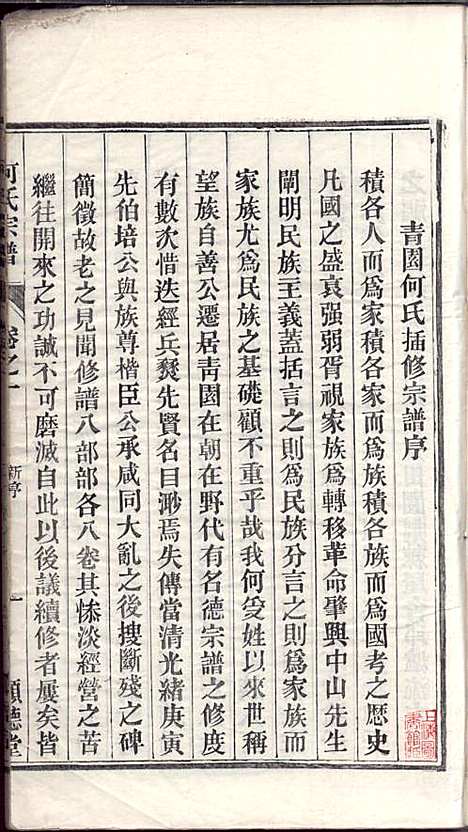 青園何氏插修宗譜序
積各人而爲家積各家而爲族積各族而爲國考之歷史
凡國之盛衰强弱胥視家族爲轉移革命肇興中山先生
闡明民族主義蓋括言之則爲民族分言之則爲家族而
家族尤爲民族之基礎顧不重乎哉我何受姓以來世稱
望族自善公遷居青園在朝在野代有名德宗譜之修度
有數次惜迭經兵燹先賢名目渺焉失傳當清光緒庚寅
先伯培公與族尊楷臣公承咸同大亂之後搜斷殘之碑
簡徵故老之見聞修譜八部部各八卷其慘淡經營之苦
繼往開來之功誠不可磨滅自此以後議續修者屢矣皆
何氏宗譜
卷之一
新序
一
順德堂